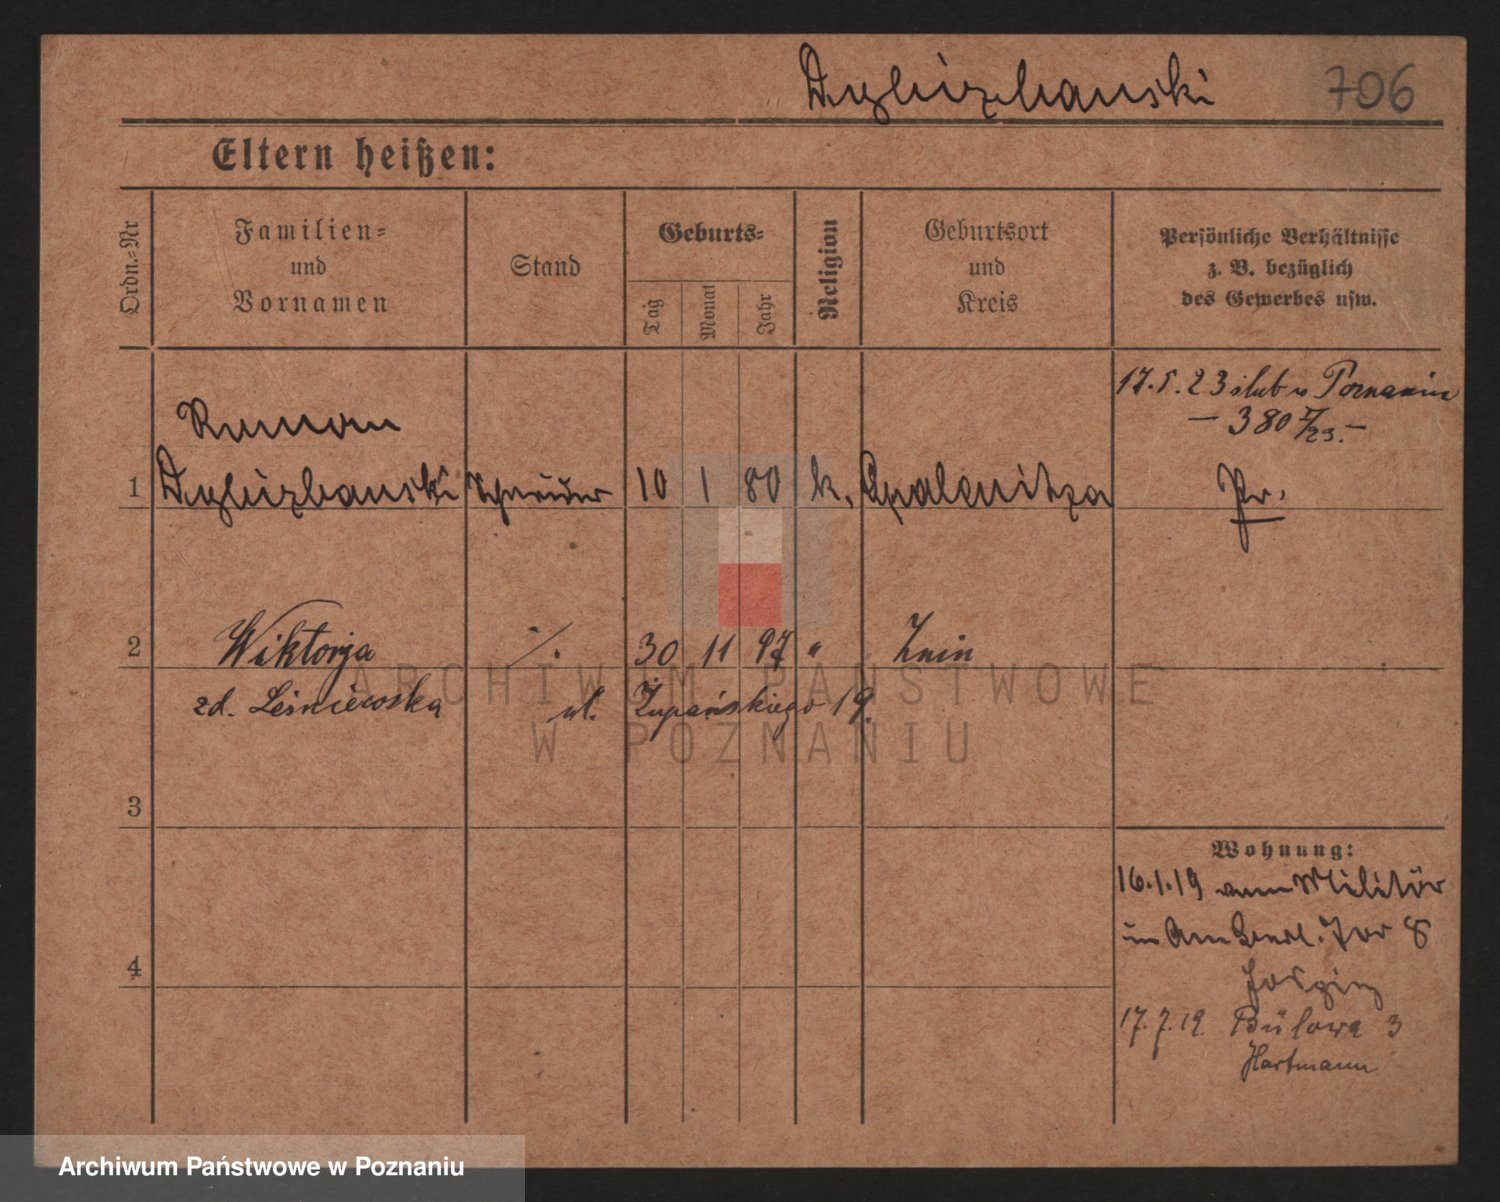 706
Eltern heißen:
Ordn.=Nr
Familien=
und
Vornamen
Stand
Geburts=
Tag
Monat
Jahr
Religion
Geburtsort
und
Kreis
Persönliche Verhältnisse
z. B. bezüglich
des Gewerbes usw.
17. 5. 23 ślub w Poznaniu
— 380 /23. —
Roman
1 Schneider 10 1 80 k. Opalenitza Pr.
2 Wiktorja ./. 30 11 97 " Żnin
zd. Leśniewska ul. Żupańskiego 19.
3
Wohnung:
16.1.19 vom Militär
8
4
17.7.19. Bülowa 3
Hartmann
ARCHIWUM PAŃSTWOWE
W POZNANIU
Archiwum Państwowe w Poznaniu